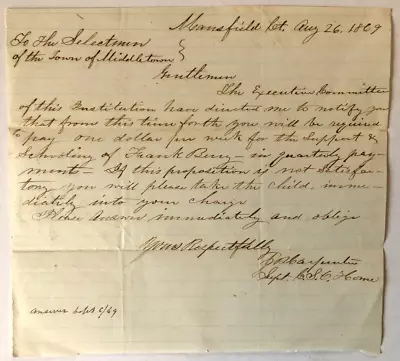 Mansfield Ct. Aug 26. 1869
To The Selectmen
of the Town of Middletown
Gentlemen
The Executive Committee
of this Institution have directed me to notify you
that from this time forth you will be required
to pay one dollar per week for the Support &
Schooling of Frank Berry — in quarterly pay-
ment — If this proposition is not satisfac-
tory you will please take the child, imme-
diately into your charge
Please Answer immediately and oblige
Yours Respectfully
Carpenter
Supt. C.S.O. Home
answer Sept /69